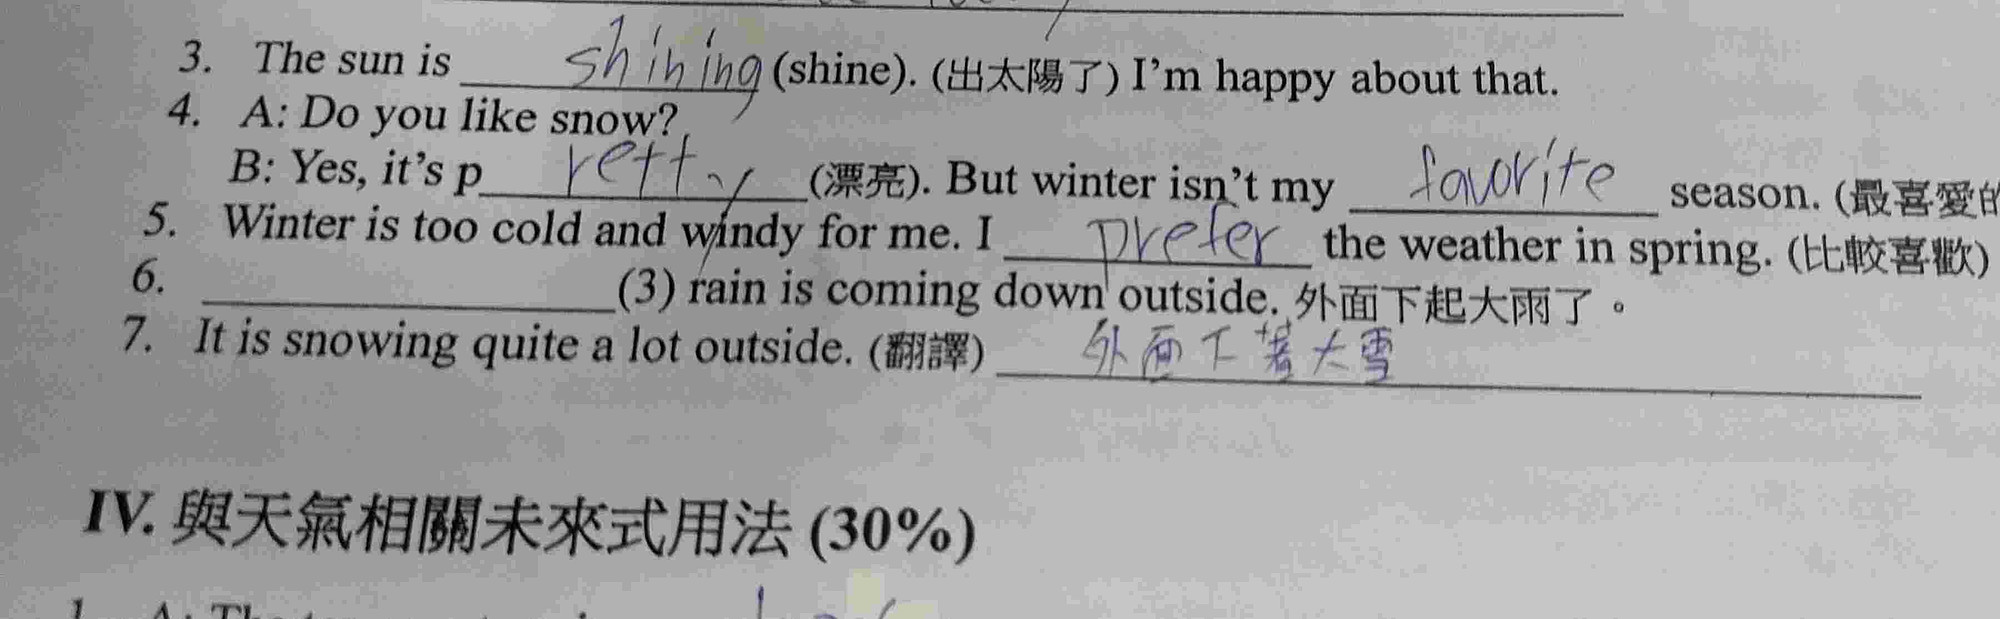 3. The sun is shining (shine). (出太陽了) I'm happy about that.
4. A: Do you like snow?
B: Yes, it's pretty (漂亮). But winter isn't my favorite season. (最喜愛的
5. Winter is too cold and windy for me. I prefer the weather in spring. (比較喜歡)
6. ____________ (3) rain is coming down outside. 外面下起大雨了。
7. It is snowing quite a lot outside. (翻譯) 外面下著大雪
IV. 與天氣相關未來式用法 (30%)